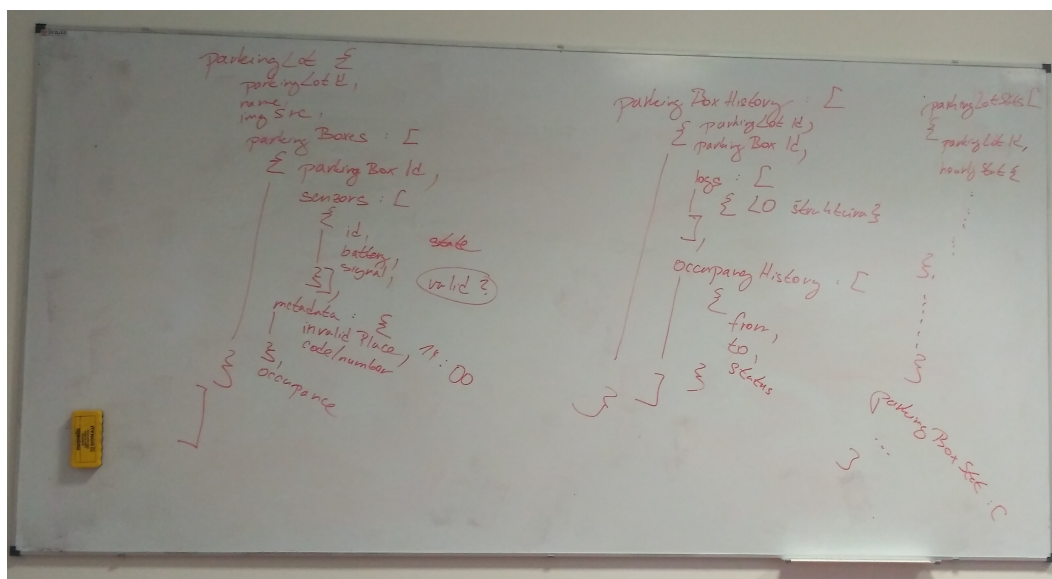 parkingLot {
parkingLotId,
name,
img src,
parking Boxes : [
{ parking Box Id,
senzors : [
{
id,
battery, state
signal, valid ?
}],
metadata : {
invalid Place,
code/number 14:00
},
occupance
}
]
parking Box History : [
{ parkingLot Id,
parking Box Id,
logs : [
{ LO struktura }
],
occupancy History : [
{
from,
to,
status
}
]
}
parkingLotStats [
{
parkingLot Id,
hourly Stat {
}.
}
parking Box Stat : [
...
}